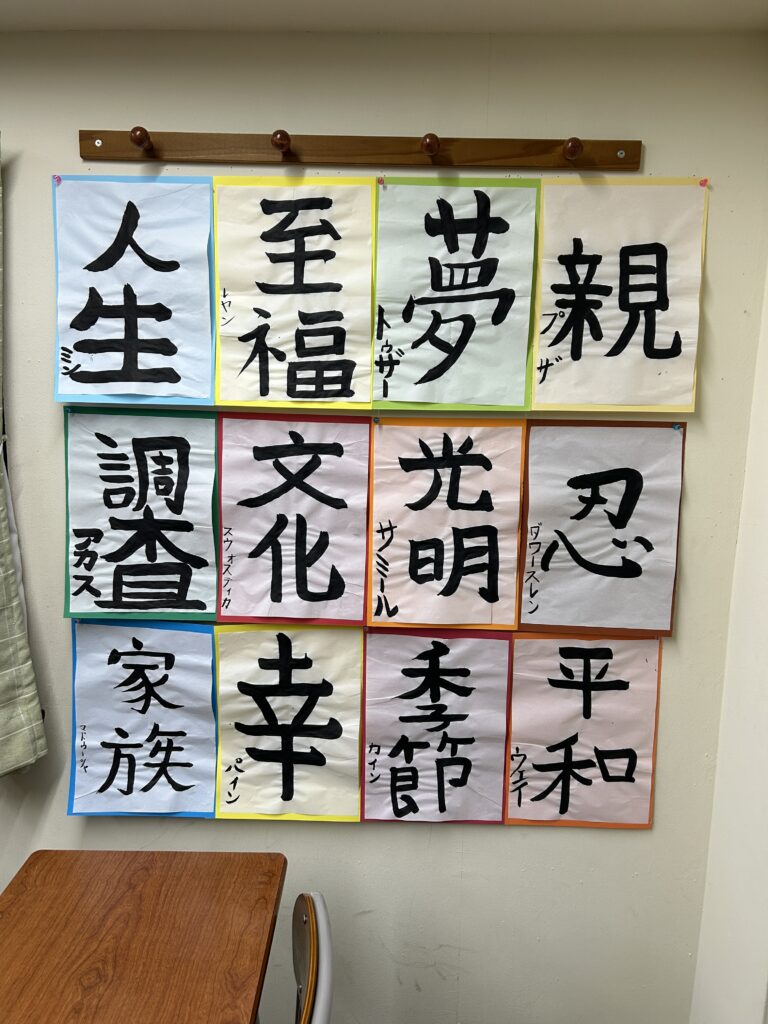 人生
ミン
至福
レヤン
夢
トゥザー
親
プザ
調査
アカス
文化
スウォスティカ
光明
サミール
忍
ダワースレン
家族
マドゥーシャ
幸
パイン
季節
カイン
平和
ウェテー